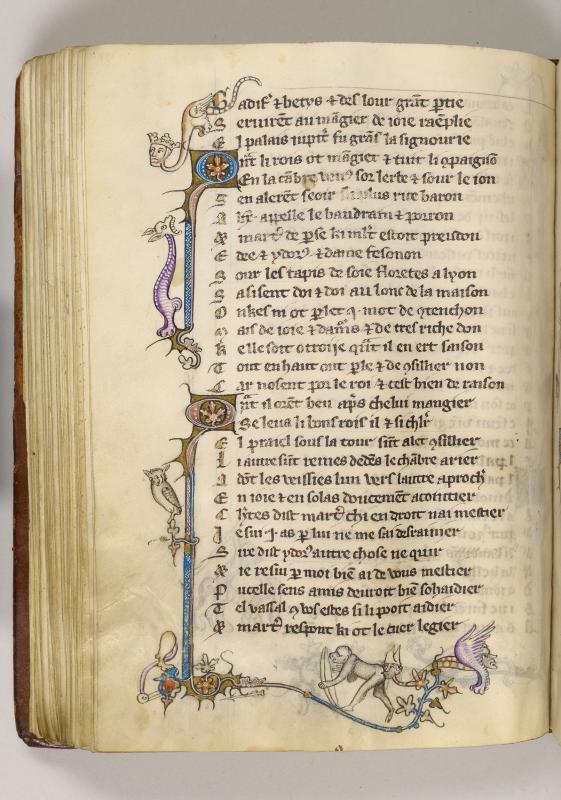 adif & betys & des lour grãt ptie
S eruirẽt au mãgier de ioie raẽplie
E l palais iupit̃ fu grãs la signourie
Q ñt li rois ot mãgiet & tuit li ꝯpaignõ
En la cãbre sor lerbe & sour le ion
S en alerẽt seoir rice baron
A apelle le baudrain & porron
& mart̃ de pse ki mlt̃ estoit preudon
E dee & ydor⁹ & dame fesonon
S our les tapis de soie floretes a lyon
S asisent doi & doi au lonc de la maison
O nkes ni ot plet ꝗ mot de ꝯtenchon
M ais de ioie & damo᷒s & de tres riche don
K elle soit otroije qñt il en ert saison
T out en haut ont ple & de ꝯsillier non
C ar nosent por le roi & cest bien de raison
Q ñt il orẽt beu ap̃s chelui mangier
Se leua li bons rois il & si chlr̃
E l praiel sous la tour sũt alet ꝯsillier
L i autre sũt remes dedẽs le chãbre arier
A dõt les veissies lun vers lautre aproch̃
E n ioie & en solas doucemẽt acointier
C dist mart̃ chi en droit nai mestier
J e sui ·i· as p lui ne me sai desrainier
S ire dist ydor⁹ autre chose ne quir
& ie resui p moi biẽ ai de vous mestier
P ucelle sens amis deuroit biẽ sohaidier
T el vassal ꝯ vos estes si li pooit aidier
& mart̃ respont ki ot le cuer legier